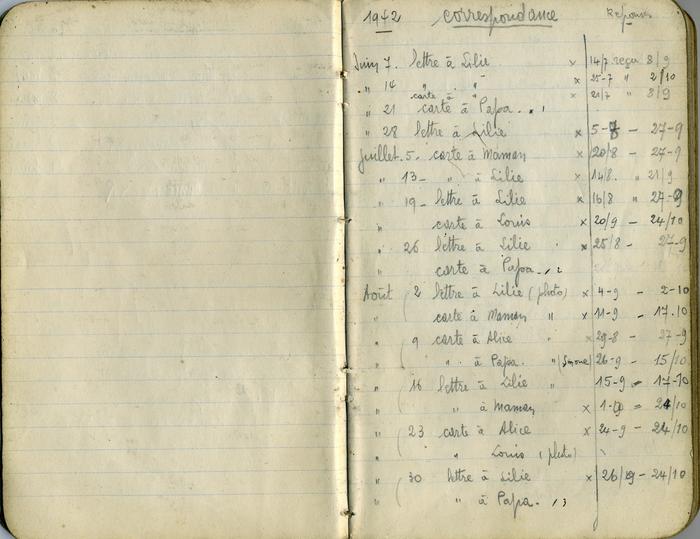 1942 correspondance Réponses
Juin 7. lettre à Lilie x 14/7 reçu 8/9
" 14 " " " x 25-7 " 2/10
carte à " x 21/7 " 8/9
" 21 carte à Papa.
" 28 lettre à Lilie x 5-8 - 27-9
Juillet. 5. carte à Maman x 20/8 - 27-9
" 13 - " à Lilie x 14/8. " 21/9
" 19 - lettre à Lilie x 16/8 " 27-9
" carte à Louis x 20/9 - 24/10
" 26 lettre à Lilie x 25/8 - 27-9
" carte à Papa.
Août 2 lettre à Lilie (photo) x 4-9 - 2-10
" carte à Maman " x 11-9 - 17.10
" 9 carte à Alice x 29-8 - 27-9
" " à Papa. " (Simone) 26-9 - 15/10
" 16 lettre à Lilie " 15-9 = 17-10
" " à Maman x 1-9 = 24/10
" 23 carte à Alice x 24-9 - 24/10
" " Louis (photo)
" 30 lettre à Lilie x 26/9 - 24/10
" " à Papa.